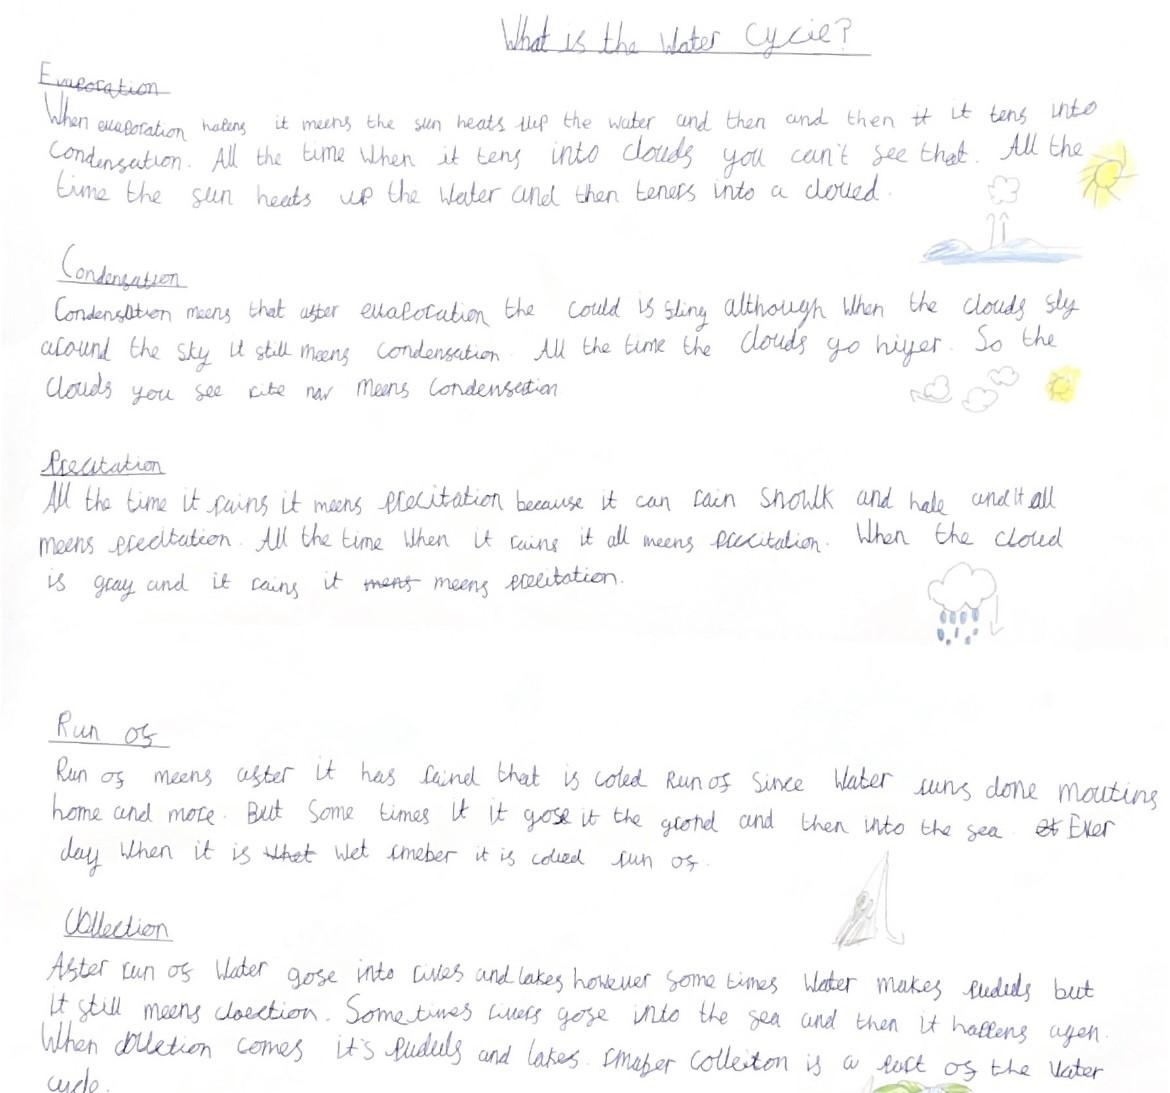 What is the Water Cycle?
Evaporation
When evaporation hapens it meens the sun heats up the water and then and then it it tens into
Condensation. All the time When it tens into clouds you can't see that. All the
time the sun heats up the Water and then teners into a cloued.
Condensation
Condensation meens that after evaporation the could is fling although When the clouds fly
around the sky it still meens Condensation. All the time the Clouds go hiyer. So the
Clouds you see rite now Meens Condensation
Precitation
All the time it rains it meens precitation because it can rain snowlk and hale and it all
meens precitation. All the time When it rains it all meens precitation. When the cloud
is gray and it rains it mens meens precitation.
Run of
Run of meens after it has rained that is coled Run of Since Water runs done moutins
home and more. But Some times it it gose it the grond and then into the sea. Ever
day When it is that Wet rmeber it is coled run of.
Collection
After run of Water gose into rives and lakes however Some times Water makes puduls but
it still meens cloection. Sometimes rivers gose into the sea and then it happens agen.
When colletion comes it's puduls and lakes. rmaber colleiton is a part of the Water
cycle.